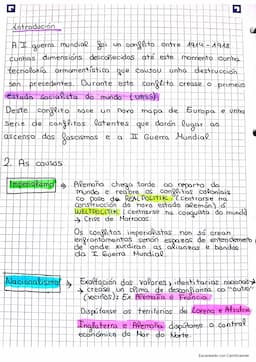 Introdución
A I guerra mundial foi un conflito entre 1914-1918
cunhas dimensións descoñecidas até este momento cunha
tecnoloxía armamentística que causou unha destrucción
sen precedentes. Durante este conflito crease o primeiro
estado socialista do mundo (URSS)
Deste conflito nace un novo mapa de Europa e unha
serie de conflitos latentes que darán lugar ao
ascenso dos fascismos e a II Guerra Mundial
2. As causas
Imperialismo → Alemaña chega tarde ao reparto do
mundo e reabre os conflitos coloniais
co paso da REALPOLITIK (centrarse na
construción do novo estado alemán) á
WELTPOLITIK (centrarse na conquista do mundo)
→ Crise de Marrocos.
Os conflitos imperialistas non só crean
enfrontamentos senón espazos de entendemento
de onde xurdiran as alianzas e bandos
da I Guerra Mundial
Nacionalismo → Exaltación dos valores, identitarios nacionais
→ crease un clima de desconfianza ao "outro"
(veciños) Ex Alemaña e Francia.
Dispútanse os territorios de Lorena e Alsacia
Inglaterra e Alemaña dispútanse o control
económico do Mar do Norte.
Escaneado con CamScanner